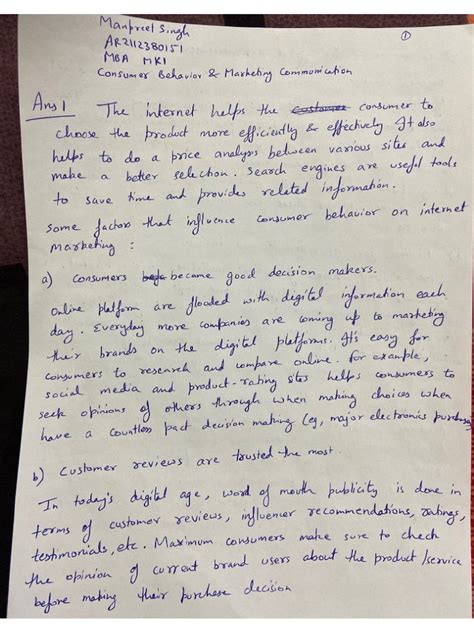 Manpreet Singh
①
AR2112380151
MBA MK1
Consumer Behavior & Marketing Communication
Ans 1 The internet helps the consumer to
choose the product more efficiently & effectively. It also
helps to do a price analysis between various sites and
make a better selection. Search engines are useful tools
to save time and provides related information.
Some factors that influence consumer behavior on internet
marketing :
a) Consumers became good decision makers.
Online platform are flooded with digital information each
day. Everyday more companies are coming up to marketing
their brands on the digital platforms. It's easy for
consumers to research and compare online. For example,
social media and product-rating sites helps consumers to
seek opinions of others through when making choices when
have a countless pact decision making (eg, major electronics purchase
b) Customer reviews are trusted the most.
In today's digital age, word of mouth publicity is done in
terms of customer reviews, influencer recommendations, ratings,
testimonials, etc. Maximum consumers make sure to check
the opinion of current brand users about the product/service
before making their purchase decision